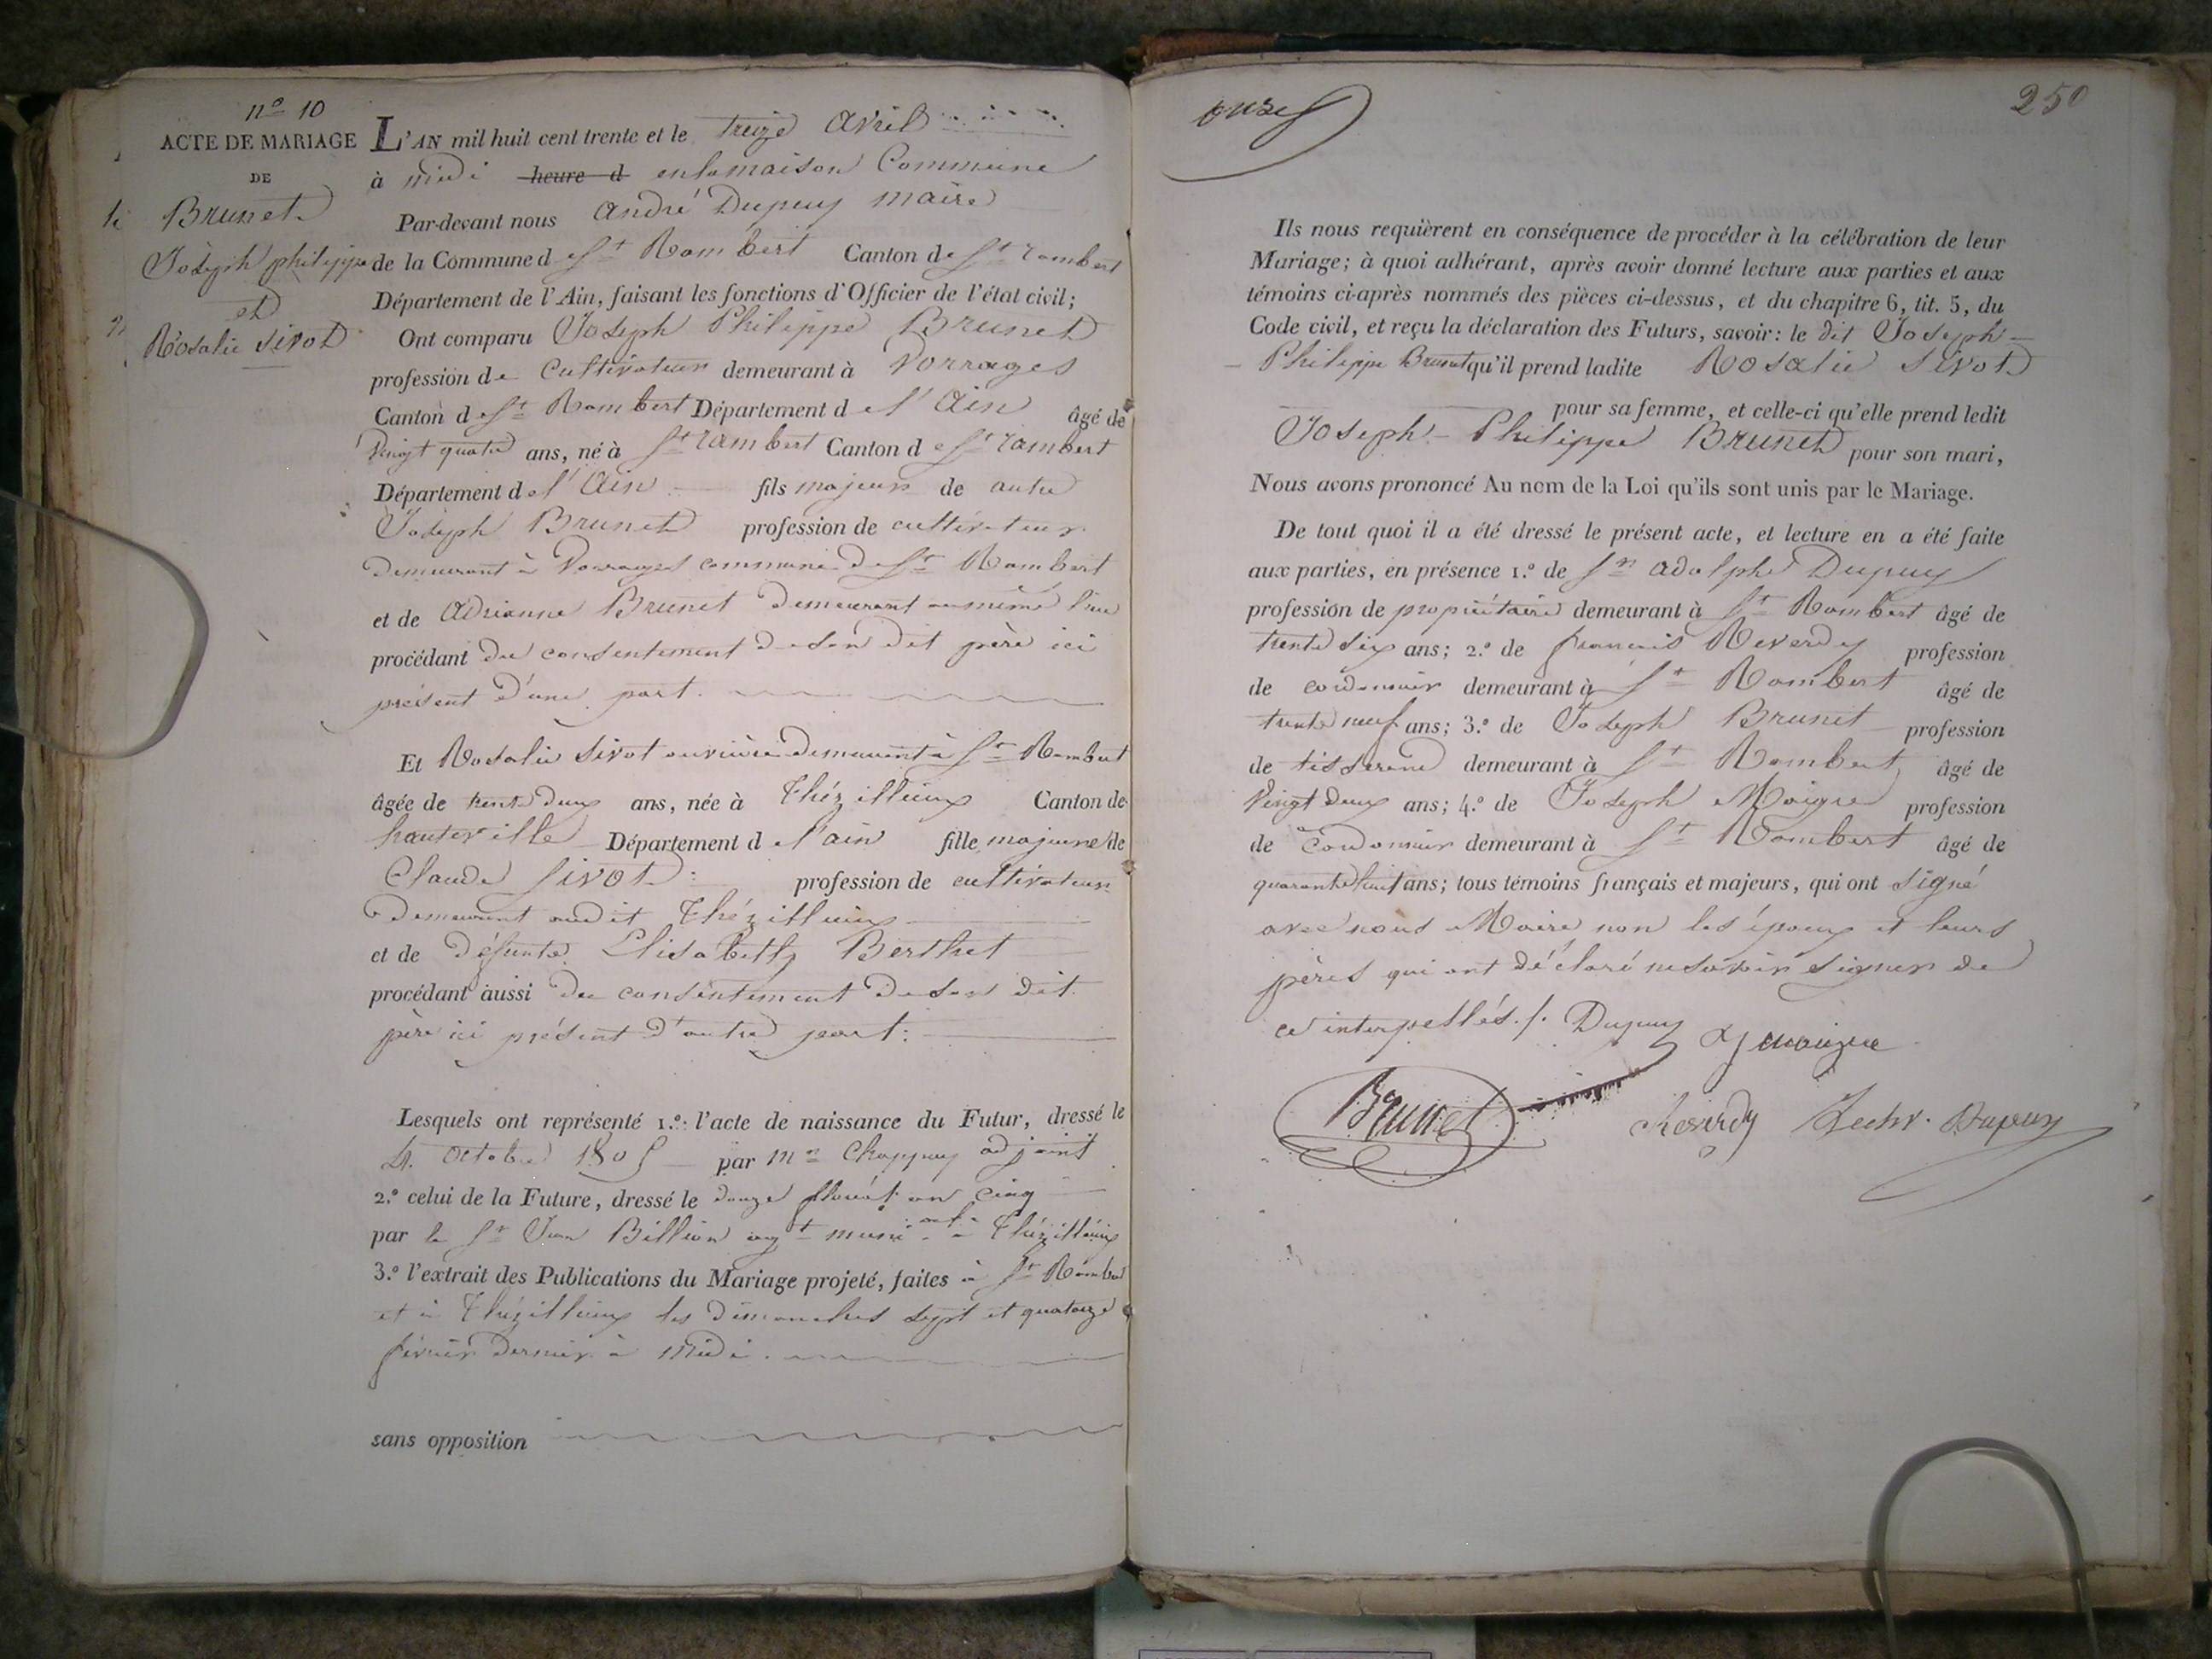 nº 10
ACTE DE MARIAGE
DE
Brunet
Joseph philippe
et
Rosalie Sivot
L'AN mil huit cent trente et le treize avril
à midi heure d en la maison Commune
Par-devant nous andré Dupuy maire
de la Commune de St Rambert Canton de St rambert
Département de l'Ain, faisant les fonctions d'Officier de l'état civil;
Ont comparu Joseph Philippe Brunet
profession de Cultivateur demeurant à Vorrages
Canton de St Rambert Département de l'Ain âgé de
Vingt quatre ans, né à St rambert Canton de St rambert
Département de l'Ain fils majeur de autre
Joseph Brunet profession de cultivateur
demeurant à Vorrages commune de St Rambert
et de Adrianne Brunet demeurant au même lieu
procédant du consentement de son dit père ici
présent d'une part.
Et Rosalie Sivot ouvrière demeurant à St Rambert
âgée de trente deux ans, née à Thézillieux Canton de
hauteville Département de l'ain fille majeure de
Claude Sivot profession de cultivateur
demeurant audit Thézillieux
et de défunte Elisabeth Berthet
procédant aussi du consentement de son dit
père ici présent d'autre part:
Lesquels ont représenté 1.º: l'acte de naissance du Futur, dressé le
4. Octobre 1805 par mr Chappuy adjoint
2.º celui de la Future, dressé le douze floréal an cinq
par le Sr Jean Billion agt munic.al à Thézillieux
3.º l'extrait des Publications du Mariage projeté, faites à St Rambert
et à Thézillieux les dimanches sept et quatorze
février dernier à midi.
sans opposition
onze
250
Ils nous requièrent en conséquence de procéder à la célébration de leur
Mariage; à quoi adhérant, après avoir donné lecture aux parties et aux
témoins ci-après nommés des pièces ci-dessus, et du chapitre 6, tit. 5, du
Code civil, et reçu la déclaration des Futurs, savoir: le dit Joseph
Philippe Brunet qu'il prend ladite Rosalie Sivot
pour sa femme, et celle-ci qu'elle prend ledit
Joseph Philippe Brunet pour son mari,
Nous avons prononcé Au nom de la Loi qu'ils sont unis par le Mariage.
De tout quoi il a été dressé le présent acte, et lecture en a été faite
aux parties, en présence 1.º de Sr adolphe Dupuy
profession de propriétaire demeurant à St Rambert âgé de
trente six ans; 2.º de françois Reverdy profession
de cordonnier demeurant à St Rambert âgé de
trente neuf ans; 3.º de Joseph Brunet profession
de tisserand demeurant à St Rambert âgé de
Vingt deux ans; 4.º de Joseph Moigre profession
de Cordonnier demeurant à St Rambert âgé de
quarante huit ans; tous témoins français et majeurs, qui ont signé
avec nous Maire non les époux et leurs
pères qui ont déclaré ne savoir signer de
ce interpellés./. Dupuy
Brunet Reverdy Dupuy